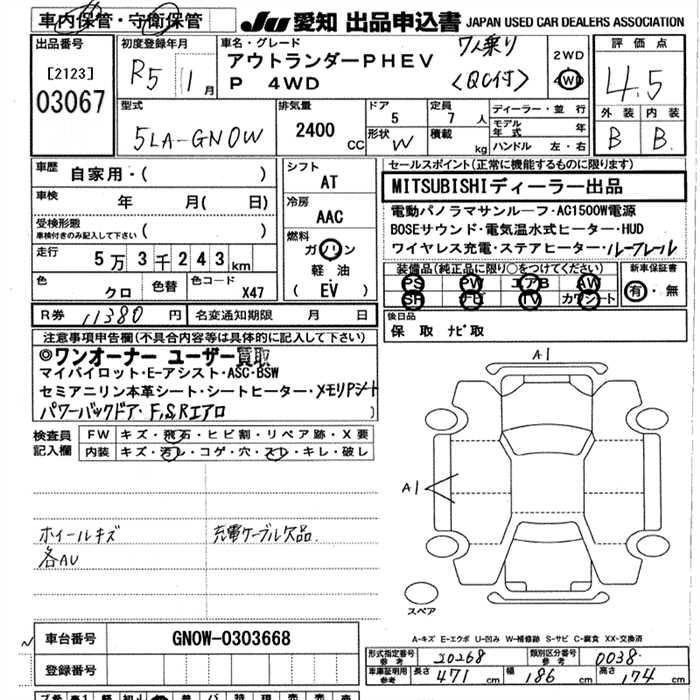 車内保管・守衛保管
JU 愛知 出品申込書 JAPAN USED CAR DEALERS ASSOCIATION
出品番号
[2123]
03067
初度登録年月
R5 1月
車名・グレード
アウトランダーPHEV
P 4WD
7人乗り
(QC付)
2WD
4WD
評価点
4.5
外装 内装
B B
型式
5LA-GN0W
排気量
2400 CC
ドア
5
形状
W
定員
7人
積載
kg
ディーラー・並行
モデル年式 年
ハンドル 左・右
車歴
自家用・( )
車検
年 月( 日)
受検形態
車検付きのみ記入して下さい ( )
走行
5万3千243km
色
クロ
色替
色コード
X47
シフト
AT
冷房
AAC
燃料
ガソリン
軽油
(EV)
セールスポイント(正常に機能するものに限ります)
MITSUBISHIディーラー出品
電動パノラマサンルーフ・AC1500W電源
BOSEサウンド・電気温水式ヒーター・HUD
ワイヤレス充電・ステアヒーター・ルーフレール
装備品(純正品に限り○をつけてください)
PS PW エアB AW
SR ナビ TV カワシート
新車保証書
有・無
R券 11380円
名変通知期限 月 日
後日品
保取 ナビ取
注意事項申告欄(不具合内容等は具体的に記入して下さい)
◎ワンオーナー ユーザー買取
マイパイロット・E-アシスト・ASC・BSW
セミアニリン本革シート・シートヒーター・メモリPシート
パワーバックドア・F,S,Rエアロ
検査員記入欄
FW キズ・飛石・ヒビ割・リペア跡・X要
内装 キズ・汚レ・コゲ・穴・スレ・キレ・破レ
ホイールキズ 充電ケーブル欠品
各AU
A1
A1
スペア
A-キズ E-エクボ U-凹み W-補修跡 S-サビ C-腐食 XX-交換済
車台番号
GN0W-0303668
登録番号
形式指定番号 参考 20268
類別区分番号 参考 0038
車庫証明用 参考 長さ 471 幅 186 高さ 174